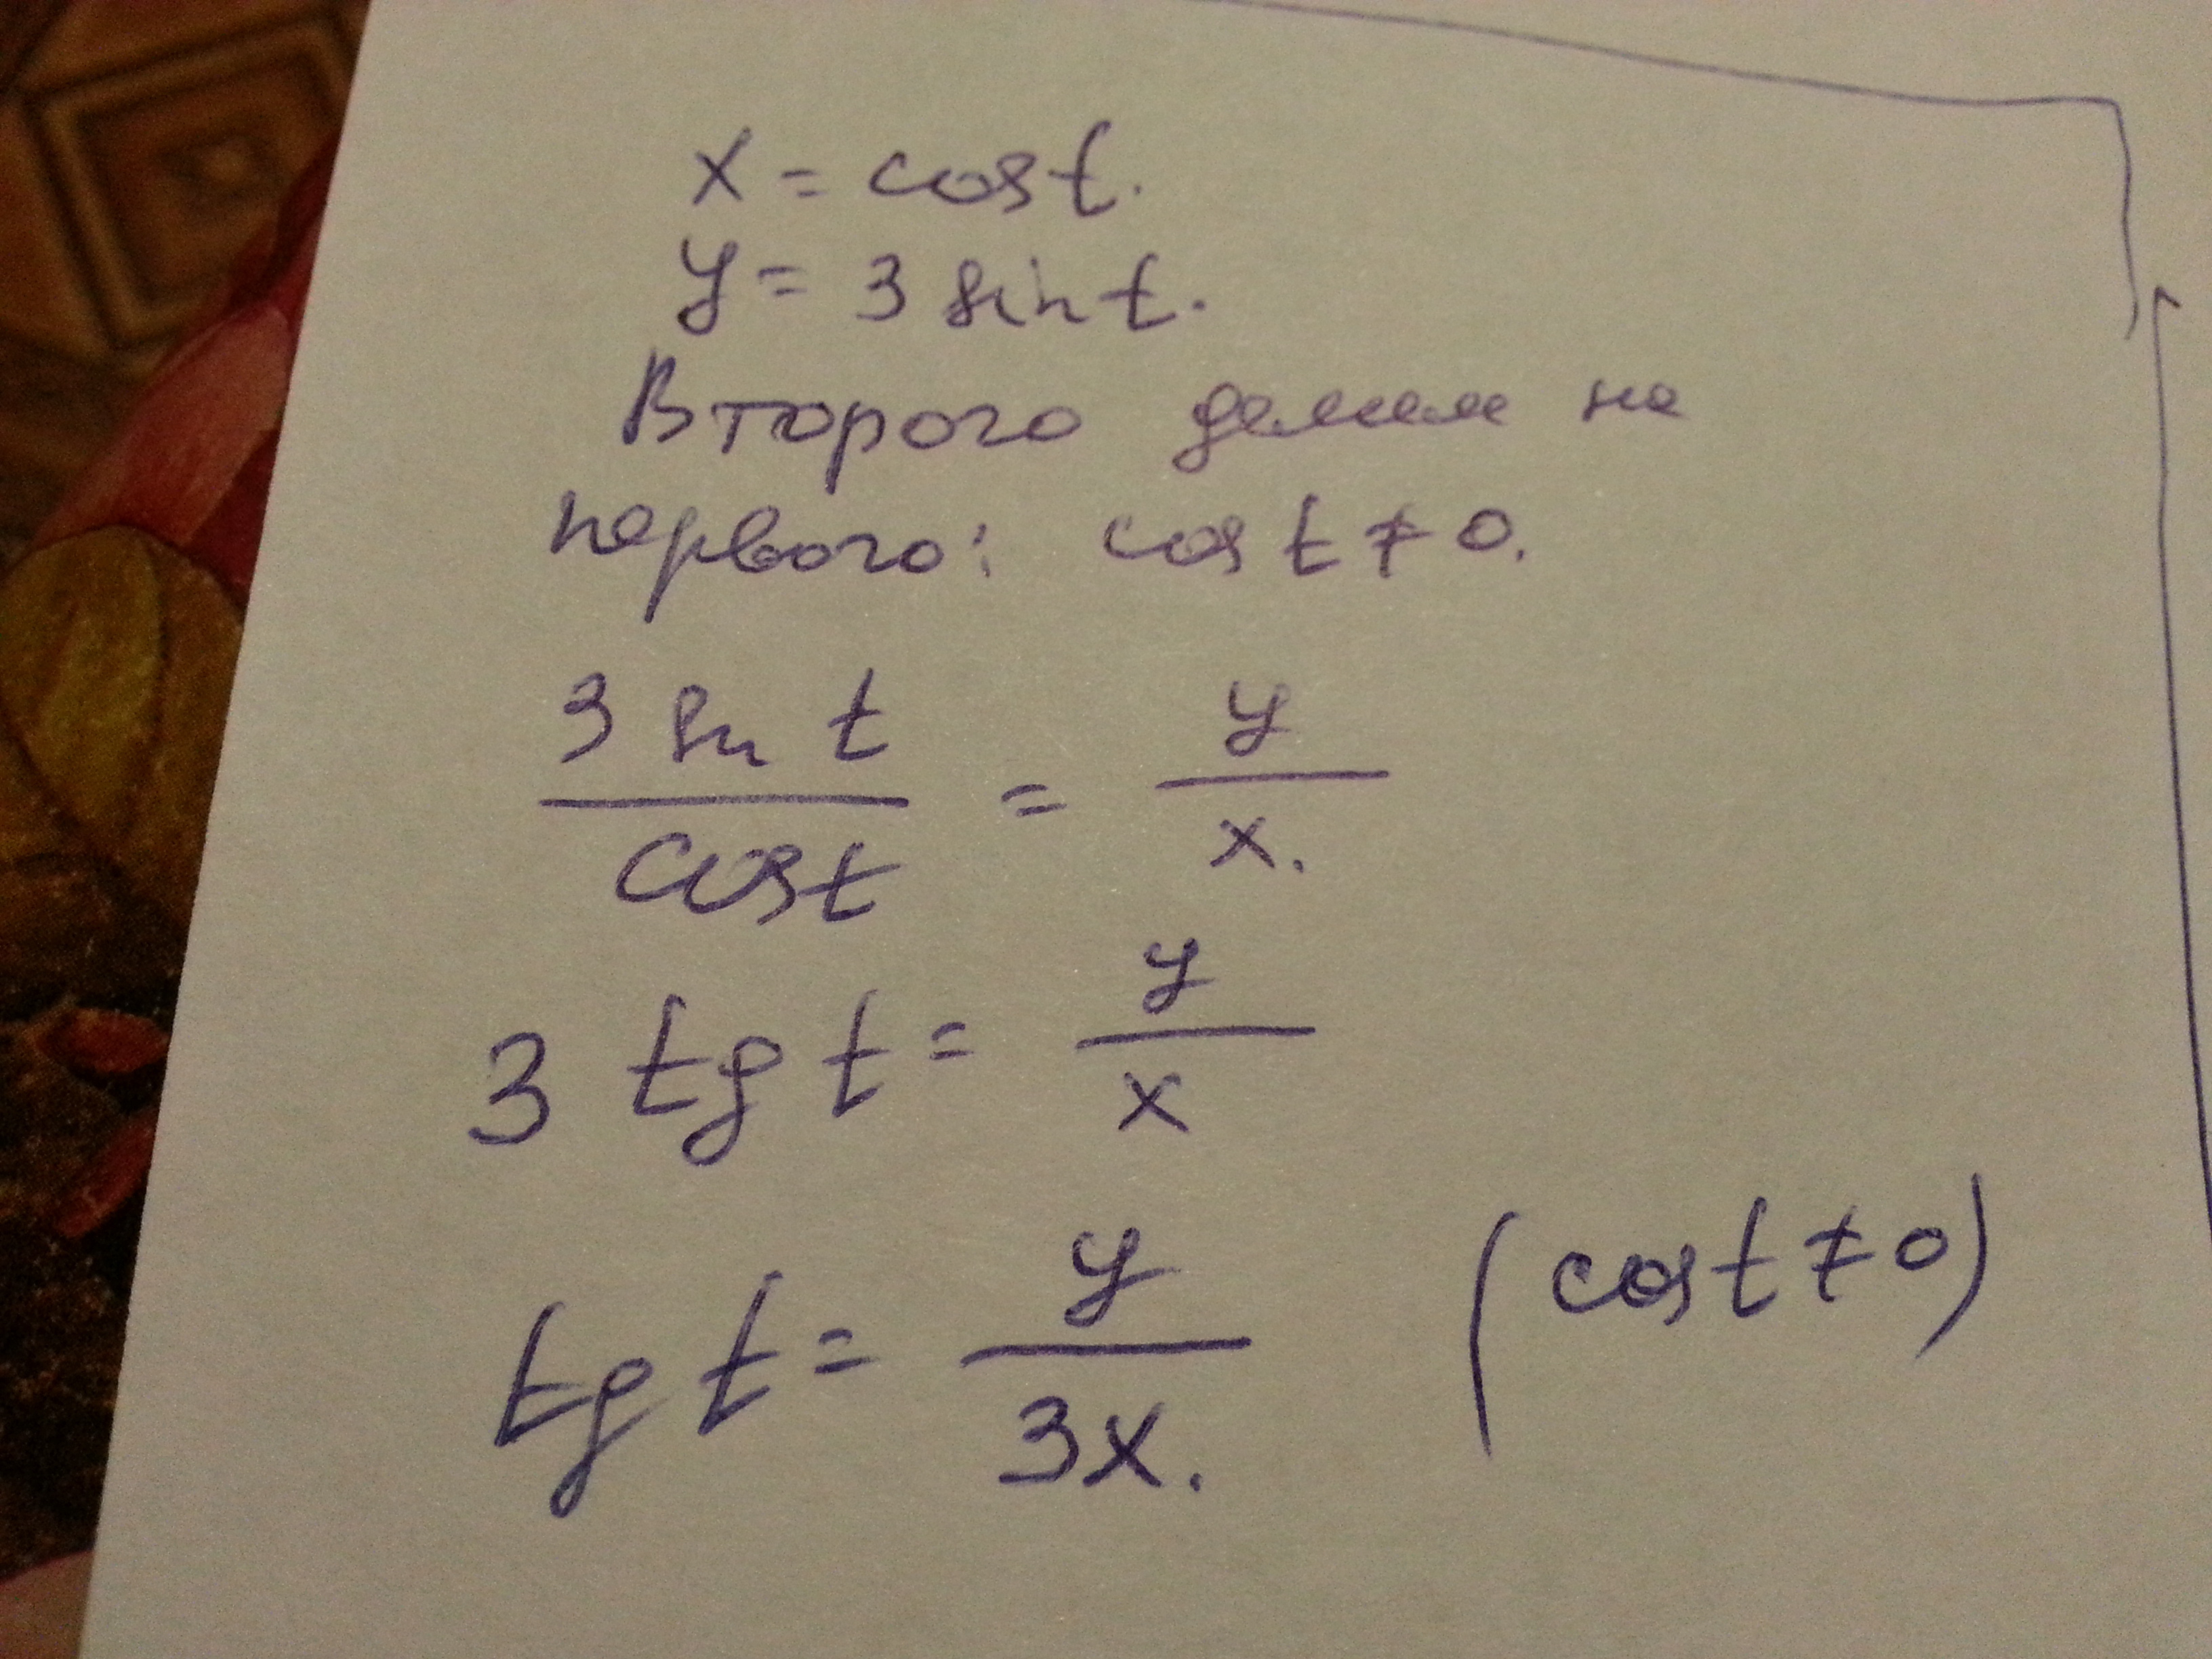 x = cos t.
y = 3 sin t.
Второго делим на
первого: cos t ≠ 0.
3 sin t / cos t = y / x.
3 tg t = y / x
tg t = y / 3x. (cos t ≠ 0)